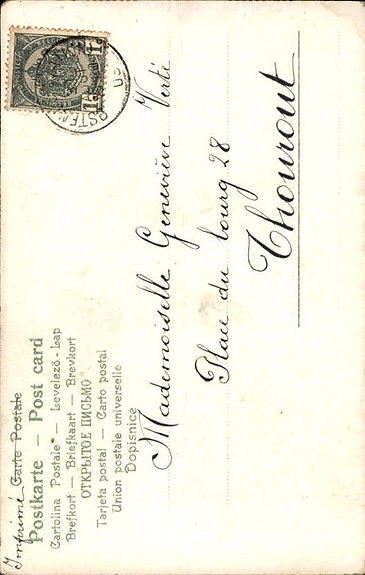 Imprimé Carte Postale
Postkarte — Post card
Cartolina Postale — Levelező-Lap
Brefkort — Briefkaart — Brevkort
ОТКРЫТОЕ ПИСЬМО
Tarjeta postal — Carto postal
Union postale universelle
Dopisnice
Mademoiselle Geneviève Verté
Place du bourg 28
Thourout